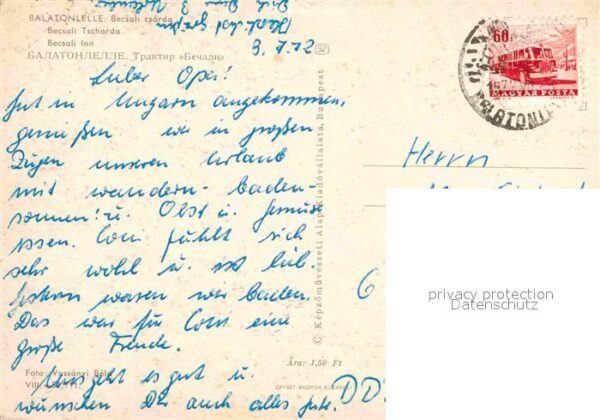 BALATONLELLE. Becsali csárda
Becsali Tscharda
Becsali Inn
БАЛАТОНЛЕЛЛЕ. Трактир «Бечали»
3.7.72
Lieber Opa!
Gut in Ungarn angekommen,
genießen wir in großen
Zügen unseren Urlaub
mit wandern - baden -
sonnen! u. Obst u. Gemüse
essen. Coni fühlt sich
sehr wohl u. ist lieb.
Gestern waren wir baden.
Das war für Coni eine
große Freude.
Uns geht es gut u.
wünschen Dir auch alles gute.
Foto: Vassányi Béla
Ára: 1,50 Ft
OFFSET NYOMDA, BUDAPEST
© Képzőművészeti Alap Kiadóvállalata, Budapest
60
MAGYAR POSTA
Herrn
6
DD
privacy protection
Datenschutz